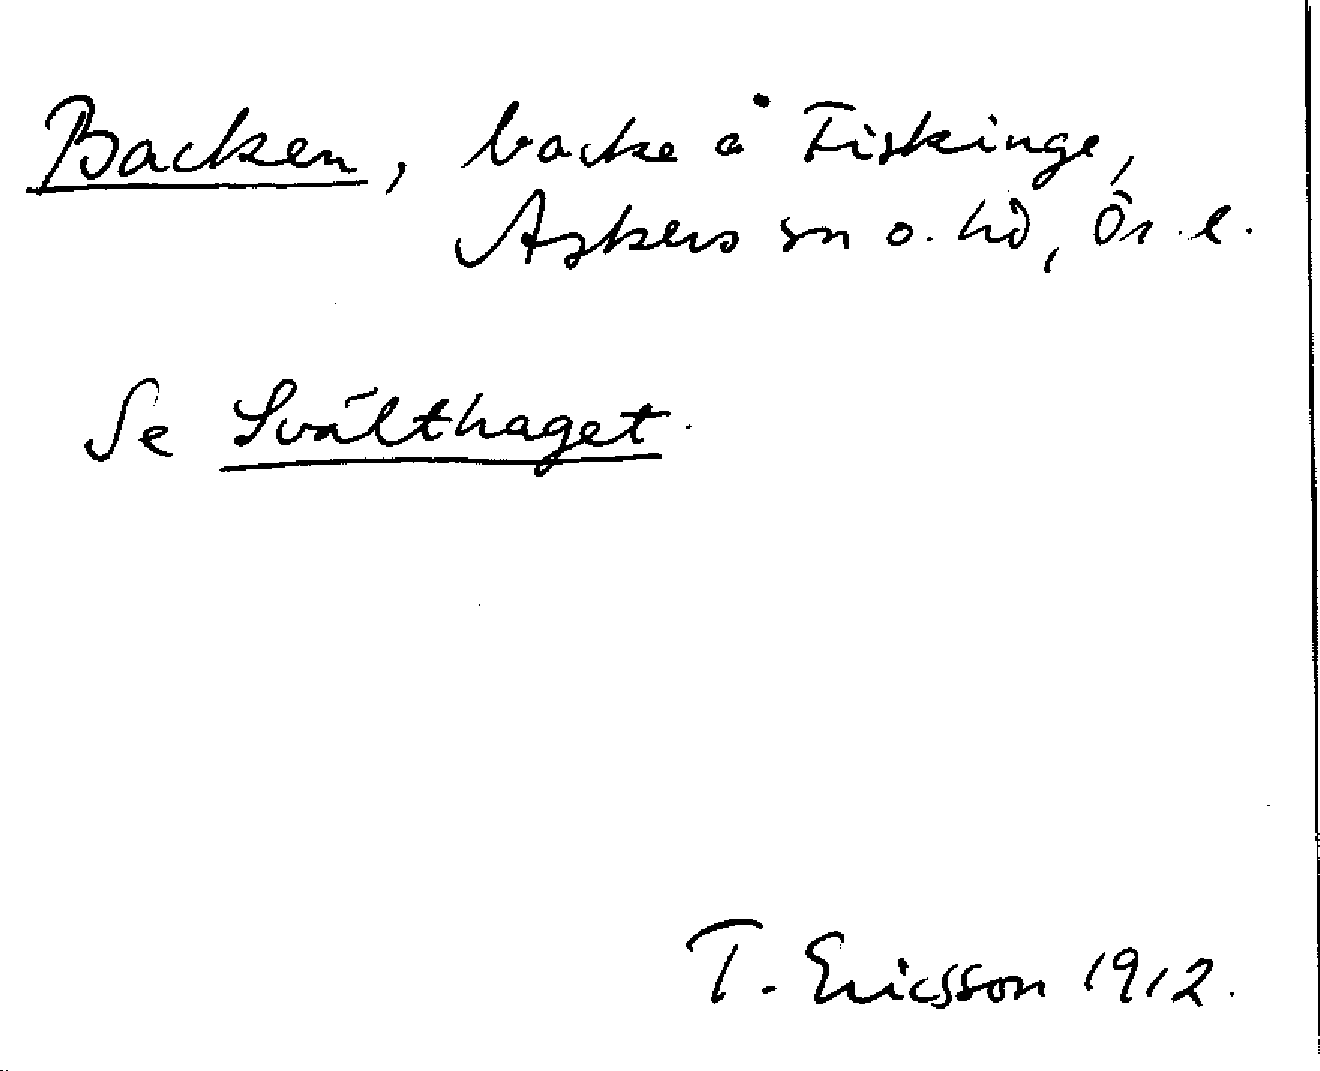 Backen, backe å Fiskinge,
Askers sn o. hd, Ör. l.
Se Svälthaget.
T. Ericsson 1912.